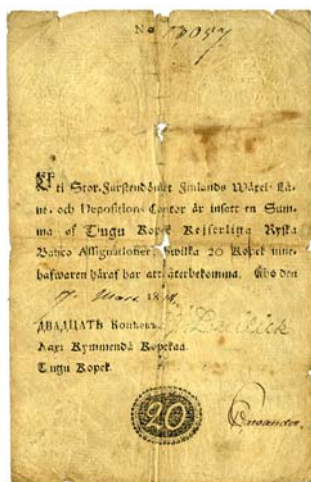 No 13057
Uti Stor-Furstendömet Finlands Wäxel-Lå-
ne- och Depositions-Contor är insatt en Sum-
ma af Tingu Kopek Keiserliga Ryska
Banco Assignationer, hwilka 20 Kopek inne-
hafwaren häraf har att återbekomma. Åbo den
ДВАДЦАТЬ Копѣекъ.
Kaxi Kymmendä Kopekaa.
Tingu Kopek.
20